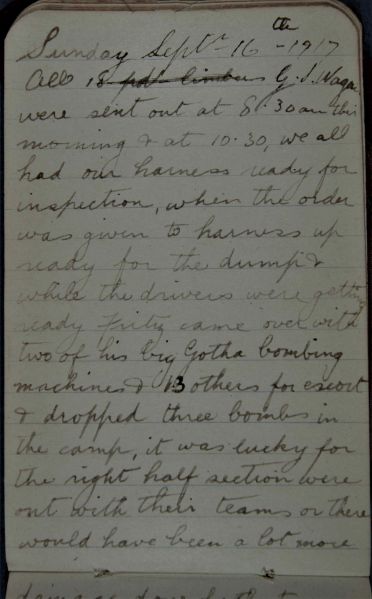 Sunday Septr 16th - 1917
All 18 pdr limbers G.S. Wagon
were sent out at 8.30am this
morning & at 10.30, we all
had our harness ready for
inspection, when the order
was given to harness up
ready for the dump &
while the drivers were getting
ready Fritz came over with
two of his big Gotha bombing
machines & 13 others for escort
& dropped three bombs in
the camp, it was lucky for
the right half section were
out with their teams or there
would have been a lot more
damage done